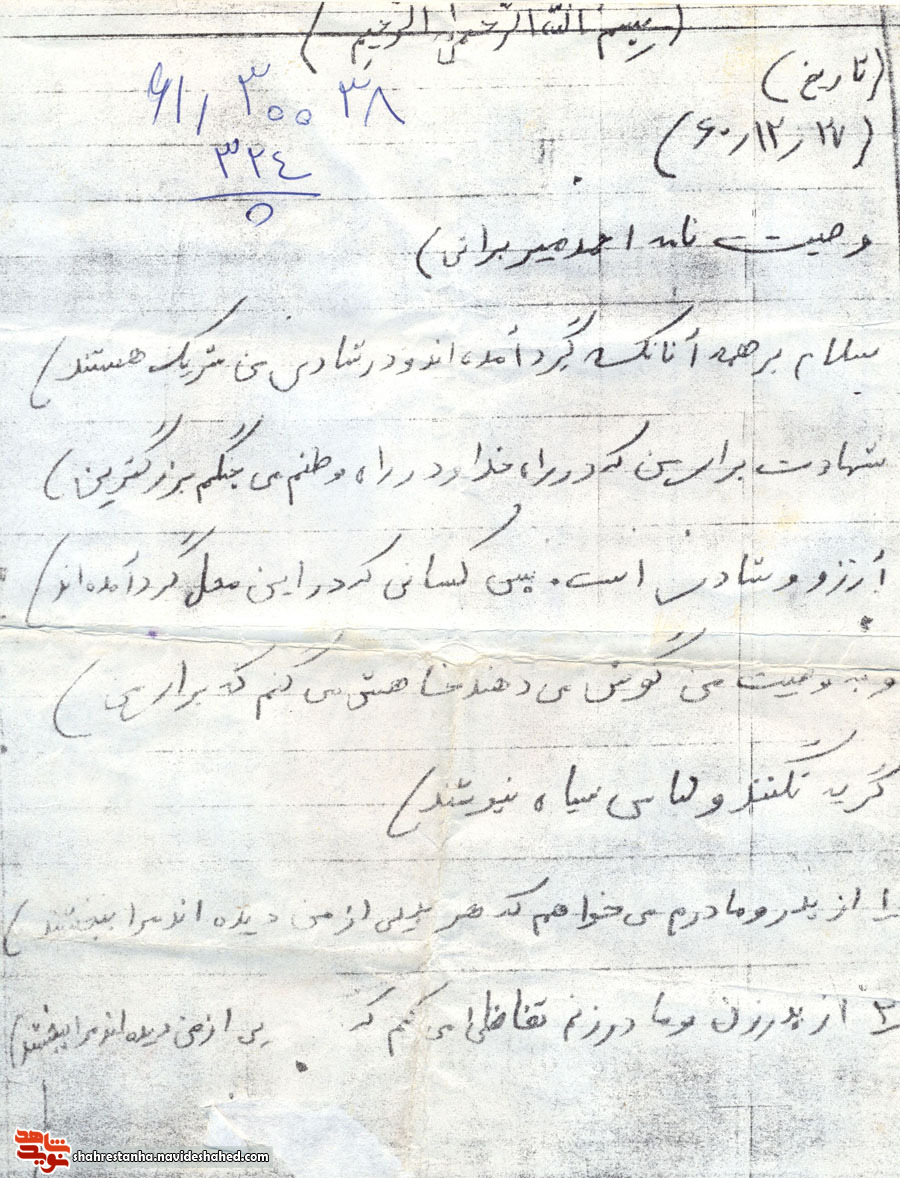 (بسم الله الرحمن الرحیم)
(تاریخ)
۶۱ر ۳۰۰۳۸
(۶۰ر۱۲ر۲۷)
۳۲۴
۵
وصیت نامه احمد میر براتی)
سلام بر همه آنانکه گرد آمده اند و در شادی من شریک هستند)
شهادت برای من که در راه خدا و در راه وطنم می جنگم بزرگترین)
آرزو و شادی است. پس کسانی که در این محل گرد آمده اند)
و به وصیت من گوش می دهند خاهش می کنم که برای من)
گریه نکنند و لباس سیاه نپوشند)
۱ از پدر و مادرم می خواهم که هر بدی از من دیده اند مرا ببخشند)
۲ از پدرزن و مادرزنم تقاضا می کنم که از من دیده اند مرا ببخشند)
نوید شاهد
shahrestanha.navideshahed.com